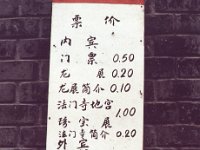 票价
内宾
门票 0.50
龙展 0.20
龙展简介 0.10
法门寺地宫
珍宝展 1.00
法门寺简介 0.20
外宾